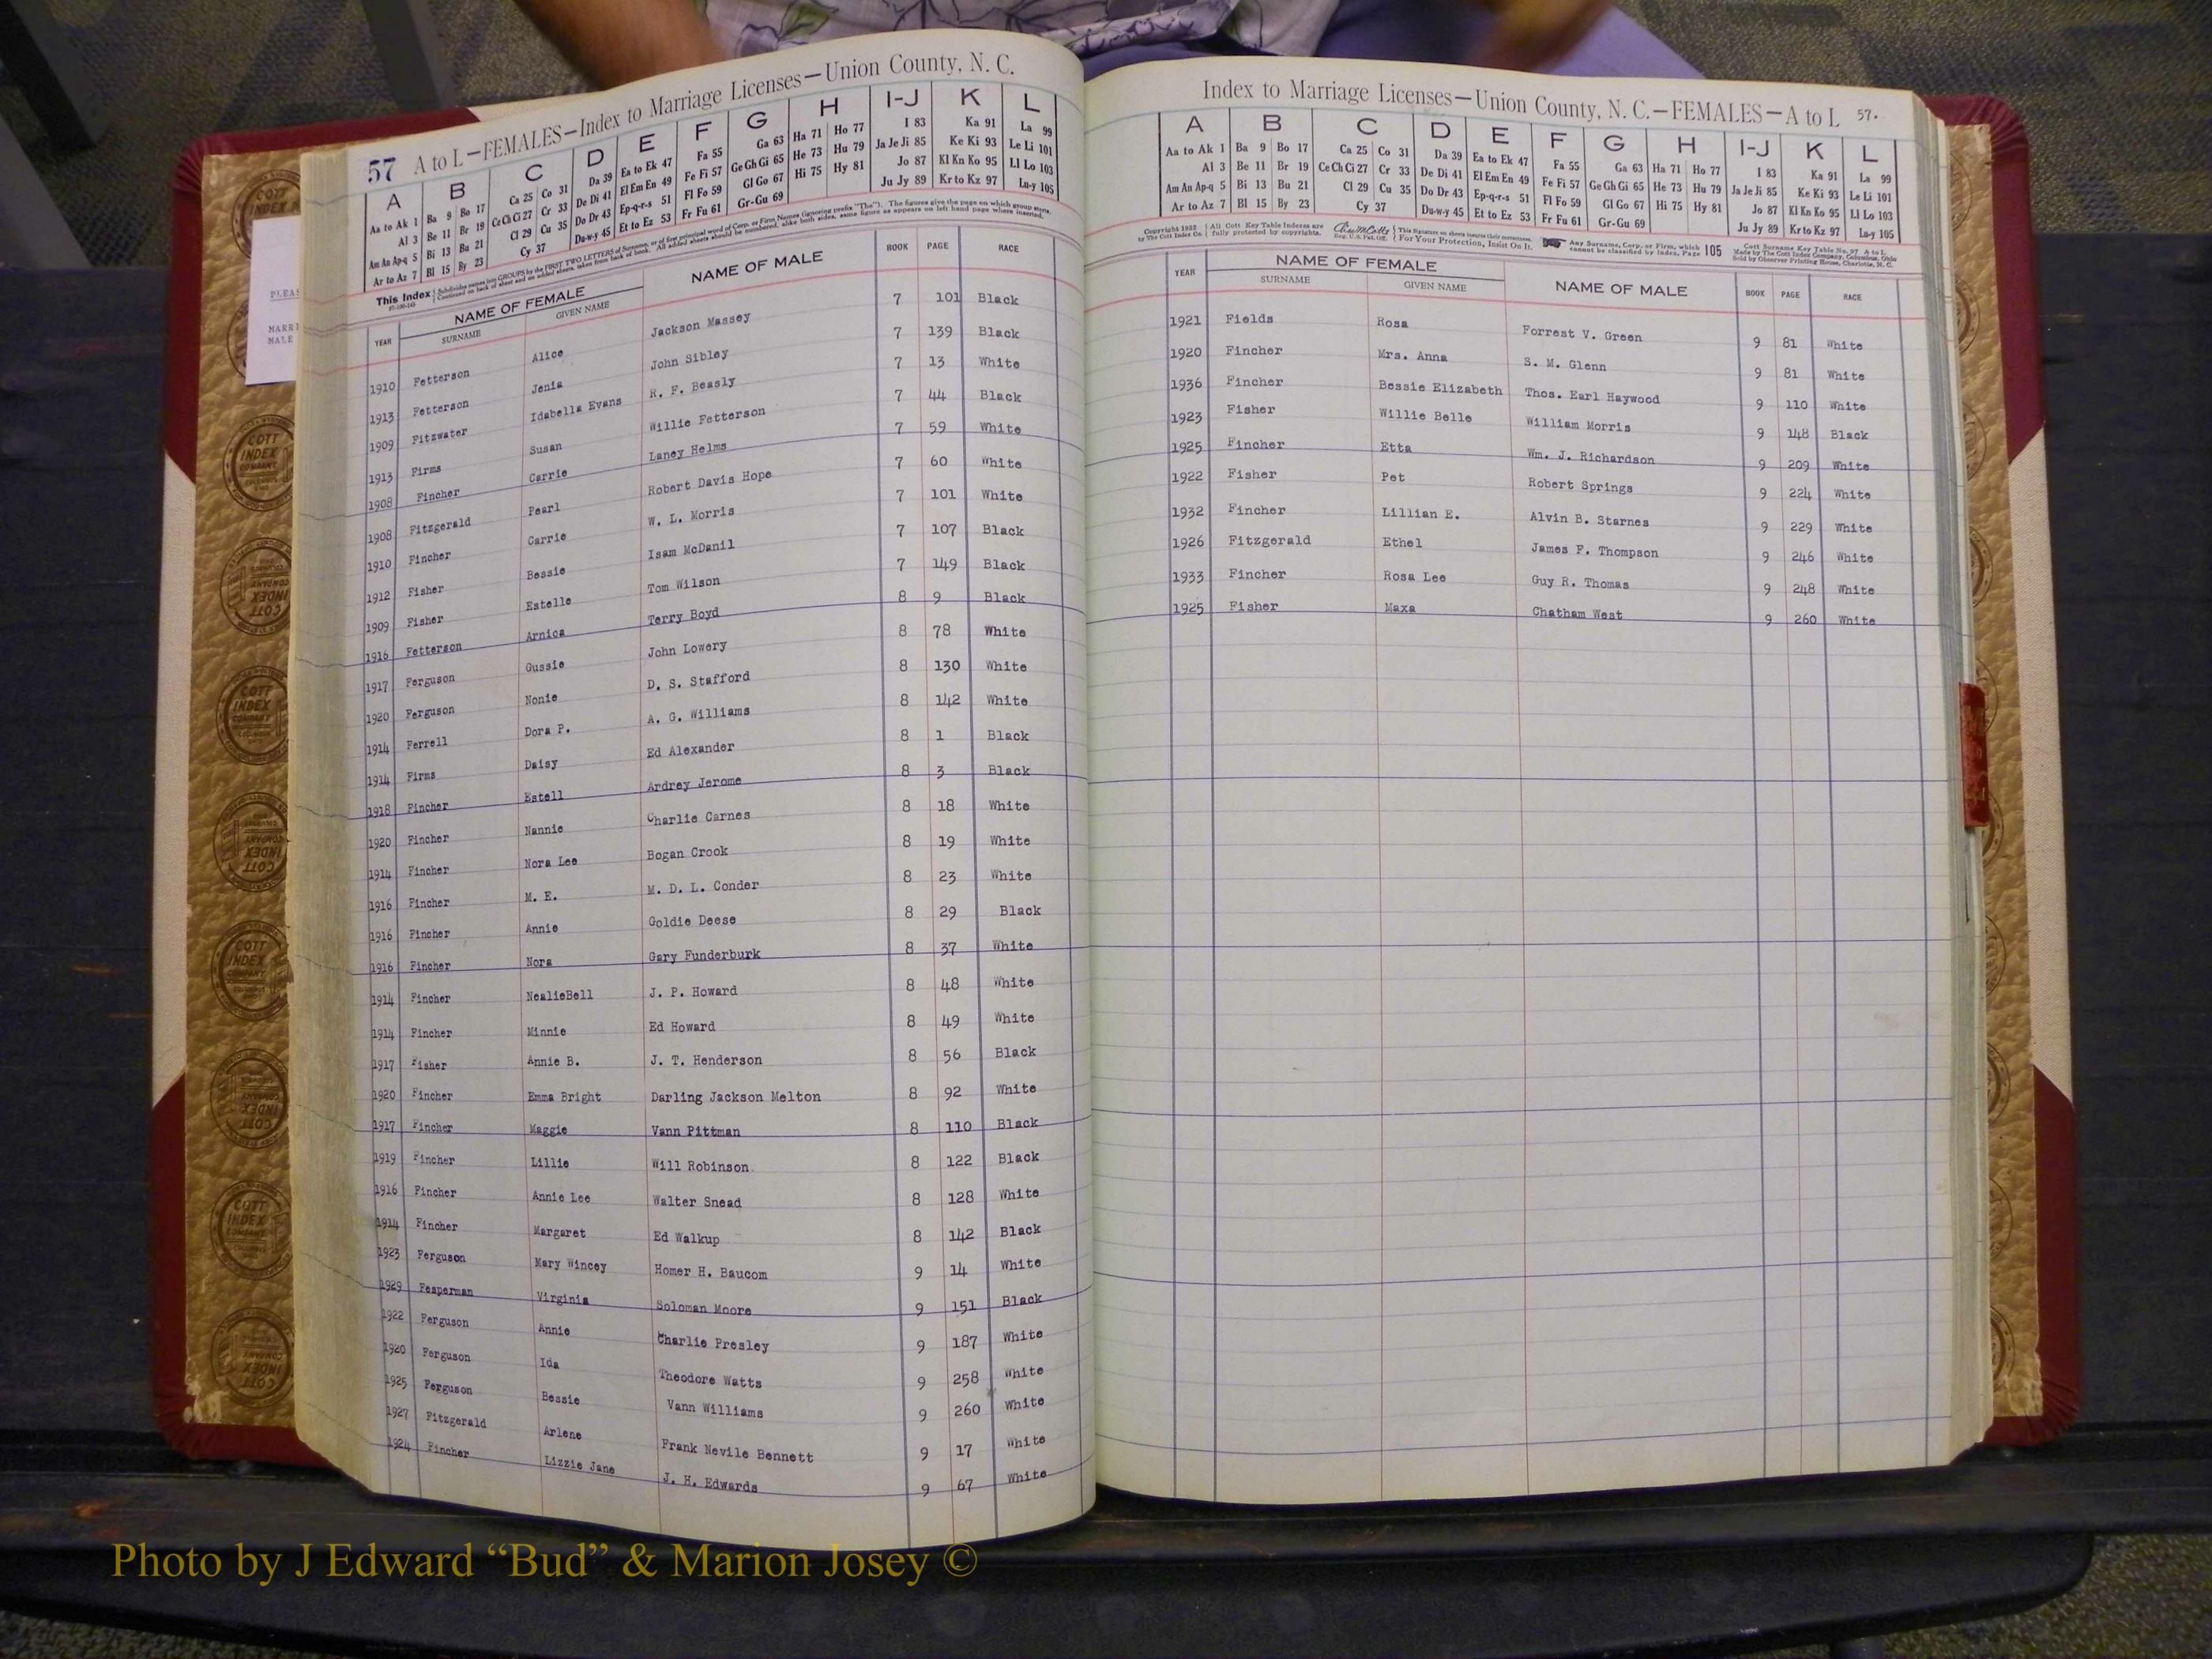 57 A to L—FEMALES—Index to Marriage Licenses—Union County, N. C.
A B C D E F G H I-J K L
Aa to Ak 1 Ba 9 Bo 17 Ca 25 Co 31 Da 39 Ea to Ek 47 Fa 55 Ga 63 Ha 71 Ho 77 I 83 Ka 91 La 99
Al 3 Be 11 Br 19 Ce Ch Ci 27 Cr 33 De Di 41 El Em En 49 Fe Fi 57 Ge Gh Gi 65 He 73 Hu 79 Ja Je Ji 85 Ke Ki 93 Le Li 101
Am An Ap-q 5 Bi 13 Bu 21 Cl 29 Cu 35 Do Dr 43 Ep-q-r-s 51 Fl Fo 59 Gl Go 67 Hi 75 Hy 81 Jo 87 Kl Kn Ko 95 Ll Lo 103
Ar to Az 7 Bl 15 By 23 Cy 37 Du-w-y 45 Et to Ez 53 Fr Fu 61 Gr-Gu 69 Ju Jy 89 Kr to Kz 97 Lu-y 105
This Index Subdivides names into GROUPS by the FIRST TWO LETTERS of Surname, or of first principal word of Corp. or Firm Names (ignoring prefix "The"). The figures give the page on which group starts.
Continued on back of sheet and on added sheets, taken from back of book. All added sheets should be numbered, alike both sides, same figure as appears on left hand page where inserted.
YEAR NAME OF FEMALE NAME OF MALE BOOK PAGE RACE
SURNAME GIVEN NAME
1910 Fetterson Alice Jackson Massey 7 101 Black
1913 Fetterson Jenia John Sibley 7 139 Black
1909 Fitzwater Idabella Evans R. F. Beasly 7 13 White
1913 Firms Susan Willie Fetterson 7 44 Black
1908 Fincher Carrie Laney Helms 7 59 White
1908 Fitzgerald Pearl Robert Davis Hope 7 60 White
1910 Fincher Carrie W. L. Morris 7 101 White
1912 Fisher Bessie Isam McDanil 7 107 Black
1909 Fisher Estelle Tom Wilson 7 149 Black
1916 Fetterson Arnica Terry Boyd 8 9 Black
1917 Ferguson Gussie John Lowery 8 78 White
1920 Ferguson Nonie D. S. Stafford 8 130 White
1914 Ferrell Dora P. A. G. Williams 8 142 White
1914 Firms Daisy Ed Alexander 8 1 Black
1918 Fincher Estell Ardrey Jerome 8 3 Black
1920 Fincher Nannie Charlie Carnes 8 18 White
1914 Fincher Nora Lee Bogan Crook 8 19 White
1916 Fincher M. E. M. D. L. Conder 8 23 White
1916 Fincher Annie Goldie Deese 8 29 Black
1916 Fincher Nora Gary Funderburk 8 37 White
1914 Fincher NealieBell J. P. Howard 8 48 White
1914 Fincher Minnie Ed Howard 8 49 White
1917 Fisher Annie B. J. T. Henderson 8 56 Black
1920 Fincher Emma Bright Darling Jackson Melton 8 92 White
1917 Fincher Maggie Vann Pittman 8 110 Black
1919 Fincher Lillie Will Robinson 8 122 Black
1916 Fincher Annie Lee Walter Snead 8 128 White
1914 Fincher Margaret Ed Walkup 8 142 Black
1923 Ferguson Mary Wincey Homer H. Baucom 9 14 White
1929 Fesperman Virginia Soloman Moore 9 151 Black
1922 Ferguson Annie Charlie Presley 9 187 White
1920 Ferguson Ida Theodore Watts 9 258 White
1925 Ferguson Bessie Vann Williams 9 260 White
1927 Fitzgerald Arlene Frank Nevile Bennett 9 17 White
1924 Fincher Lizzie Jane J. H. Edwards 9 67 White
Index to Marriage Licenses—Union County, N. C.—FEMALES—A to L 57.
A B C D E F G H I-J K L
Aa to Ak 1 Ba 9 Bo 17 Ca 25 Co 31 Da 39 Ea to Ek 47 Fa 55 Ga 63 Ha 71 Ho 77 I 83 Ka 91 La 99
Al 3 Be 11 Br 19 Ce Ch Ci 27 Cr 33 De Di 41 El Em En 49 Fe Fi 57 Ge Gh Gi 65 He 73 Hu 79 Ja Je Ji 85 Ke Ki 93 Le Li 101
Am An Ap-q 5 Bi 13 Bu 21 Cl 29 Cu 35 Do Dr 43 Ep-q-r-s 51 Fl Fo 59 Gl Go 67 Hi 75 Hy 81 Jo 87 Kl Kn Ko 95 Ll Lo 103
Ar to Az 7 Bl 15 By 23 Cy 37 Du-w-y 45 Et to Ez 53 Fr Fu 61 Gr-Gu 69 Ju Jy 89 Kr to Kz 97 Lu-y 105
Copyright 1932 All Cott Key Table Indexes are This Signature on sheets insures their genuineness. Any Surname, Corp. or Firm, which Cott Surname Key Table No. 97 A to L
by The Cott Index Co. fully protected by copyrights. Reg. U.S. Pat. Off. For Your Protection, Insist On It. cannot be classified by Index, Page 105 Made by The Cott Index Company, Columbus, Ohio
Sold by Observer Printing House, Charlotte, N. C.
YEAR NAME OF FEMALE NAME OF MALE BOOK PAGE RACE
SURNAME GIVEN NAME
1921 Fields Rosa Forrest V. Green 9 81 White
1920 Fincher Mrs. Anna S. M. Glenn 9 81 White
1936 Fincher Bessie Elizabeth Thos. Earl Haywood 9 110 White
1923 Fisher Willie Belle William Morris 9 148 Black
1925 Fincher Etta Wm. J. Richardson 9 209 White
1922 Fisher Pet Robert Springs 9 224 White
1932 Fincher Lillian E. Alvin B. Starnes 9 229 White
1926 Fitzgerald Ethel James F. Thompson 9 246 White
1933 Fincher Rosa Lee Guy R. Thomas 9 248 White
1925 Fisher Maxa Chatham West 9 260 White
COTT INDEX COMPANY
Photo by J Edward “Bud” & Marion Josey ©